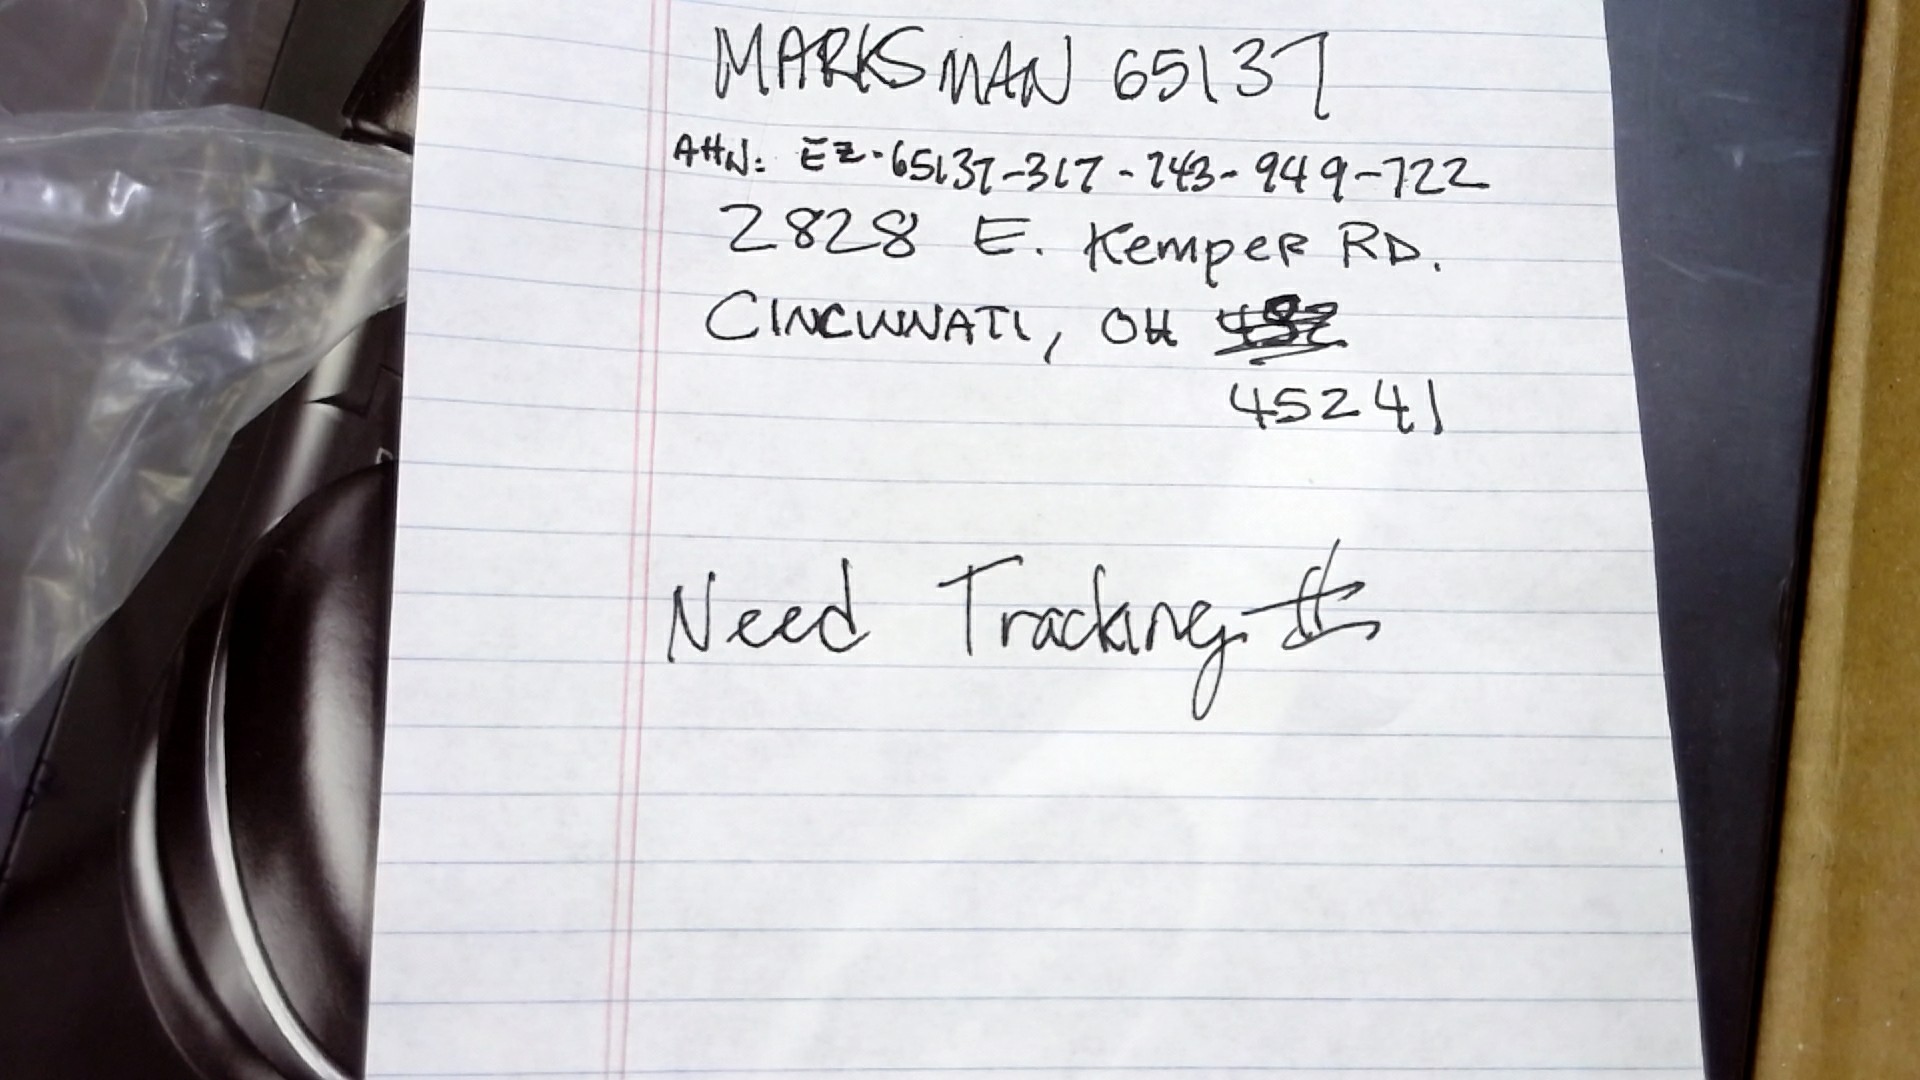 MARKSMAN 65137
Attn: EZ-65137-317-743-949-722
2828 E. Kemper RD.
CINCINNATI, OH
45241
Need Tracking #